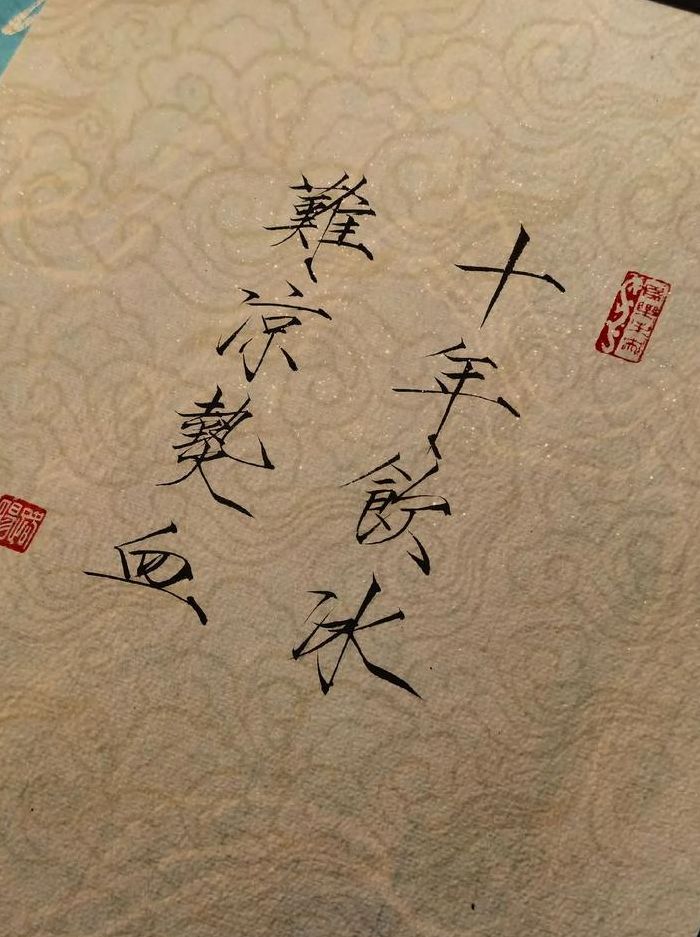 十年飲冰
難凉熱血